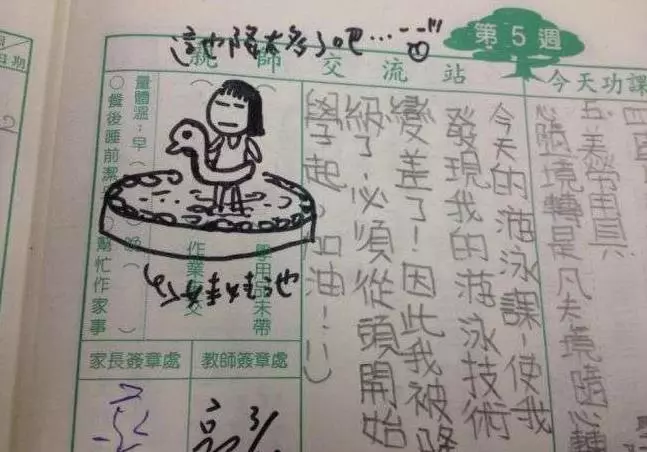 這也降太多了吧...
第5週
今天功課
親師交流站
五、美勞用具
心隨境轉是凡夫境隨心轉
今天的游泳課,使我
發現我的游泳技術
變差了!因此我被降
級了,必須從頭開始
學起。加油!
學用品未帶
作業 交
量體溫:早( 晚( )
○餐後睡前潔 幫忙作家事
娃娃池
家長簽章處
教師簽章處
3/